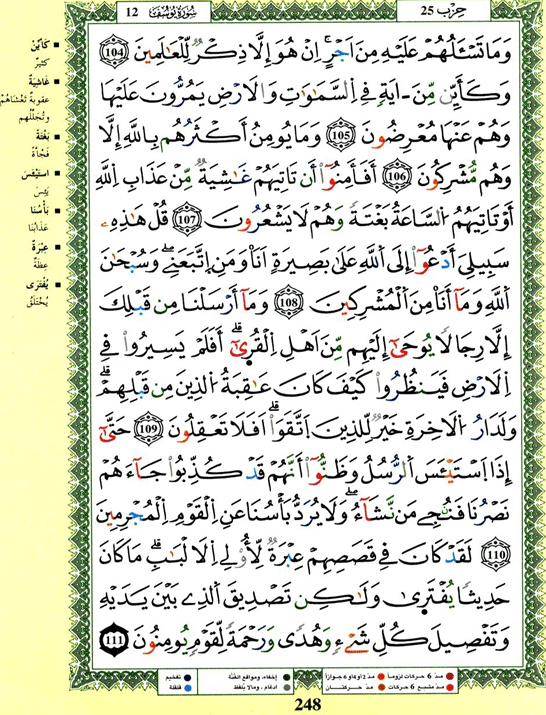 حِزْب 25
سُورَةُ يُوسُفَ 12
وَمَا تَسْـَٔلُهُمْ عَلَيْهِ مِنَ اَجْرٍ اِنْ هُوَ إِلَّا ذِكْرٌ لِّلْعَٰلَمِينَ 104
وَكَأَيِّن مِّنَ ـ ايَةٍ فِے اِ۬لسَّمَٰوَٰتِ وَالَارْضِ يَمُرُّونَ عَلَيْهَا
وَهُمْ عَنْهَا مُعْرِضُونَ 105 وَمَا يُومِنُ أَكْثَرُهُم بِاللَّهِ إِلَّا
وَهُم مُّشْرِكُونَ 106 أَفَأَمِنُوٓاْ أَن تَاتِيَهُمْ غَٰشِيَةٌ مِّنْ عَذَابِ اِ۬للَّهِ
أَوْ تَاتِيَهُمُ اُ۬لسَّاعَةُ بَغْتَةً وَهُمْ لَا يَشْعُرُونَ 107 قُلْ هَٰذِهِۦ
سَبِيلِيَ أَدْعُوٓاْ إِلَى اَ۬للَّهِ عَلَىٰ بَصِيرَةٍ اَنَا وَمَنِ اِ۪تَّبَعَنِےۖ وَسُبْحَٰنَ
اَ۬للَّهِ وَمَآ أَنَا مِنَ اَ۬لْمُشْرِكِينَ 108 وَمَآ أَرْسَلْنَا مِن قَبْلِكَ
إِلَّا رِجَالًا يُوحَىٰٓ إِلَيْهِم مِّنَ اَهْلِ اِ۬لْقُرَىٰٓۖ أَفَلَمْ يَسِيرُواْ فِے
اِ۬لَارْضِ فَيَنظُرُواْ كَيْفَ كَانَ عَٰقِبَةُ اُ۬لذِينَ مِن قَبْلِهِمْۖ
وَلَدَارُ اُ۬لَاخِرَةِ خَيْرٌ لِّلذِينَ اَ۪تَّقَوَاْۖ اَفَلَا تَعْقِلُونَ 109 حَتَّىٰٓ
إِذَا اَ۪سْتَيْـَٔسَ اَ۬لرُّسُلُ وَظَنُّوٓاْ أَنَّهُمْ قَدْ كُذِّبُواْ جَآءَهُمْ
نَصْرُنَا فَنُنجِے مَن نَّشَآءُۖ وَلَا يُرَدُّ بَأْسُنَا عَنِ اِ۬لْقَوْمِ اِ۬لْمُجْرِمِينَ
110 لَقَدْ كَانَ فِے قَصَصِهِمْ عِبْرَةٌ لِّأُوْلِے اِ۬لَالْبَٰبِۖ مَا كَانَ
حَدِيثًا يُفْتَرَىٰ وَلَٰكِن تَصْدِيقَ اَ۬لذِے بَيْنَ يَدَيْهِ
وَتَفْصِيلَ كُلِّ شَےْءٍ وَهُدًى وَرَحْمَةً لِّقَوْمٍ يُومِنُونَ 111
كَأَيِّن
كثيرٌ
غَاشِيَةٌ
عقوبة تَغْشَاهُمْ
وتُجَلِّلُهم
بَغْتَةً
فَجْأَةً
اسْتَيْئَسَ
يَئِسَ
بَأْسُنَا
عَذَابُنَا
عِبْرَةٌ
عِظَةٌ
يُفْتَرَى
يُخْتَلَقُ
مدّ 6 حركات لزوماً
مدّ 2 أو 4 أو 6 جوازاً
إخفاء، ومواقع الغُنَّة
تفخيم
مدّ مشبع 6 حركات
مدّ حركتـــان
ادغام، وما لا يُلفَظ
قلقلة
248